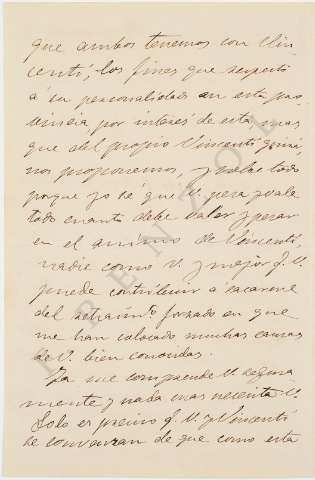 que ambos tenemos con Vin-
centi, los fines que respecto
á su personalidad en esta pro-
vincia por interés de esta, mas
que del propio Vincenti
nos proponemos, y sobre todo
porque yo sé que V. pesa y vale
todo cuanto debe valer y pesar
en el animo de Vincenti,
nadie como V. y mejor q. V.
puede contribuir a sacarme
del retraimto forzado en que
me han colocado muchas causas
de V. bien conocidas.
Ya me comprende V. segura
mente y nada mas necesita V.
Solo es preciso q. V. y Vincenti
se convenzan de que como esta
PENZOL